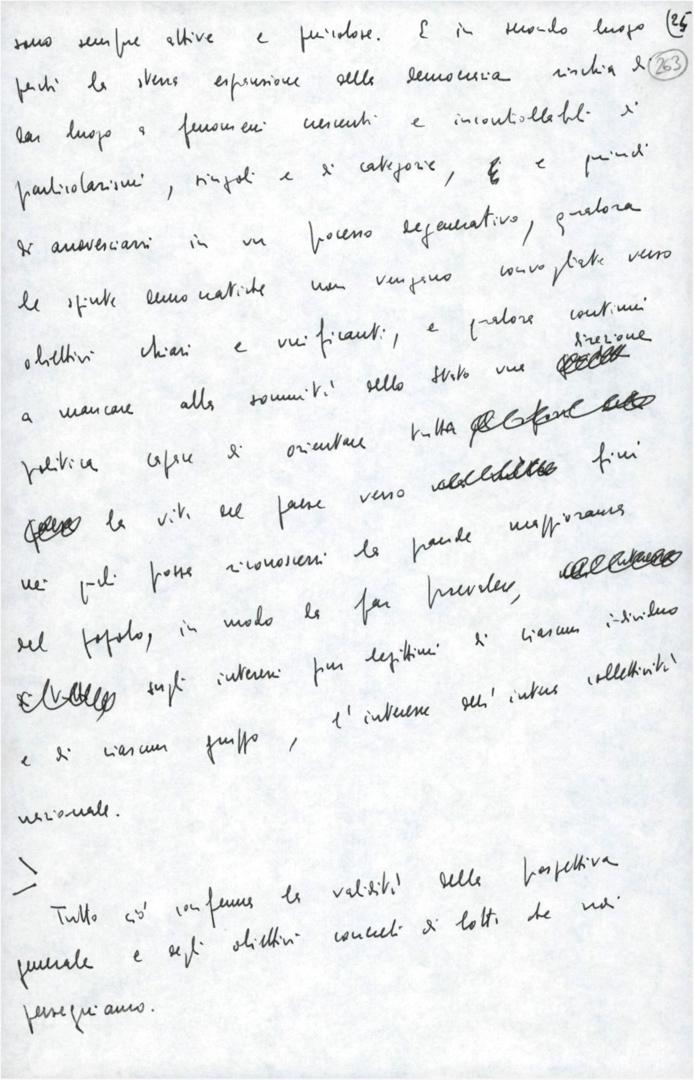 sono sempre attive e pericolose. E in secondo luogo (25
perché la stessa espansione della democrazia rischia di 263
dar luogo a fenomeni crescenti e incontrollabili di
particolarismi, singoli e di categorie, e quindi
di rovesciarsi in un processo degenerativo, qualora
le spinte democratiche non vengano convogliate verso
obiettivi chiari e unificanti, e qualora continui
a mancare alla sommità dello Stato una direzione
politica capace di orientare tutta
la vita del paese verso fini
nei quali possa riconoscersi la grande maggioranza
del popolo, in modo da far prevalere,
sugli interessi pur legittimi di ciascun individuo
e di ciascun gruppo, l'interesse dell'intera collettività
nazionale.
Tutto ciò conferma la validità della prospettiva
generale e degli obiettivi concreti di lotta che noi
perseguiamo.